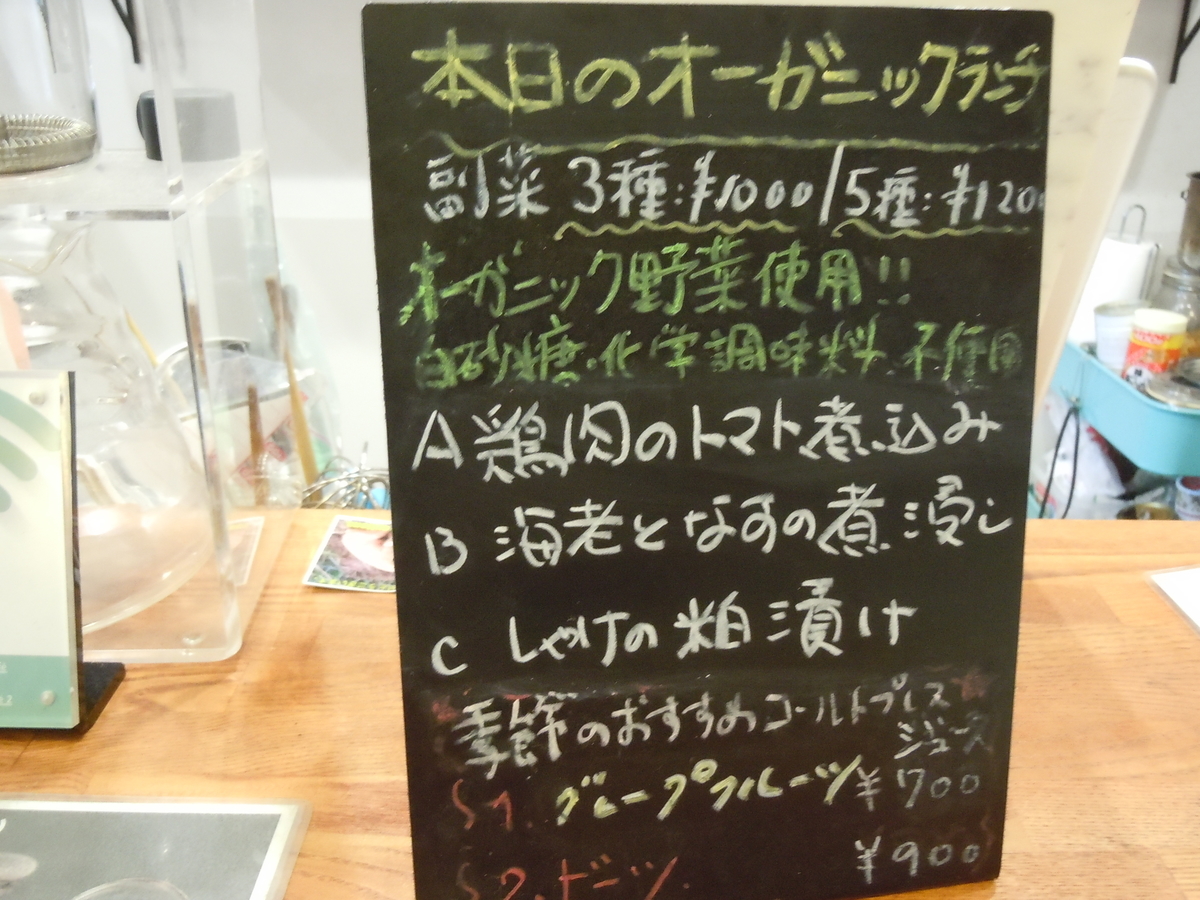 本日のオーガニックランチ
副菜 3種:¥1000/5種:¥1200
オーガニック野菜使用!!
白砂糖・化学調味料 不使用
A 鶏肉のトマト煮込み
B 海老となすの煮浸し
C しゃけの粕漬け
季節のおすすめコールドプレス
ジュース
S1. グレープフルーツ ¥700
¥900
S2. ビーツ